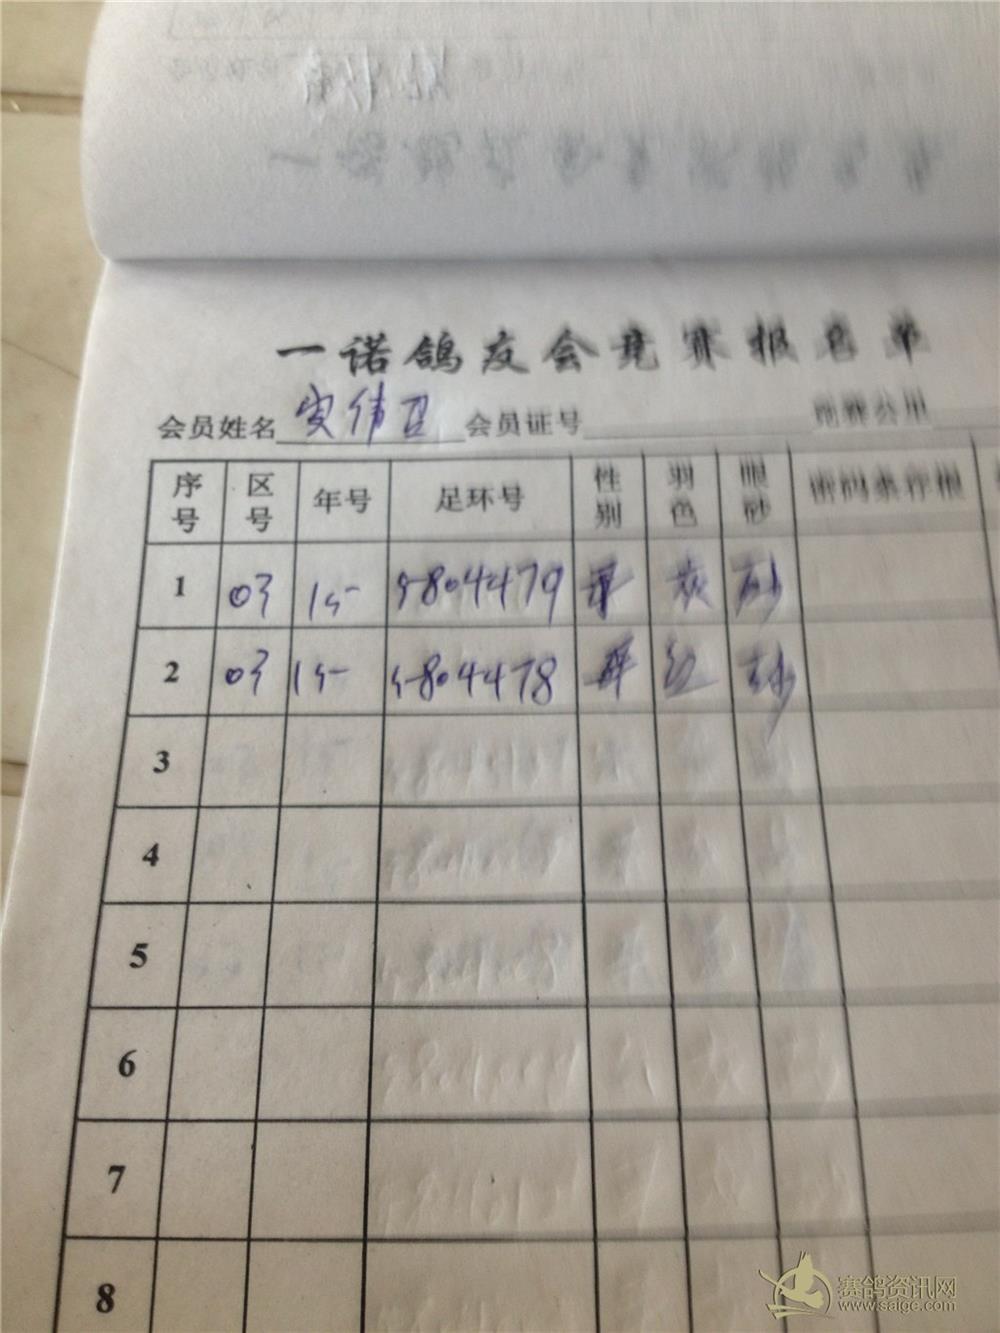 一诺鸽友会竞赛报名单
会员姓名 会员证号 竞赛公里
序号 区号 年号 足环号 性别 羽色 眼砂
1 03 15 5804479 灰 砂
2 03 15 5804478 红 砂
3
4
5
6
7
8
赛鸽资讯网
www.saige.com